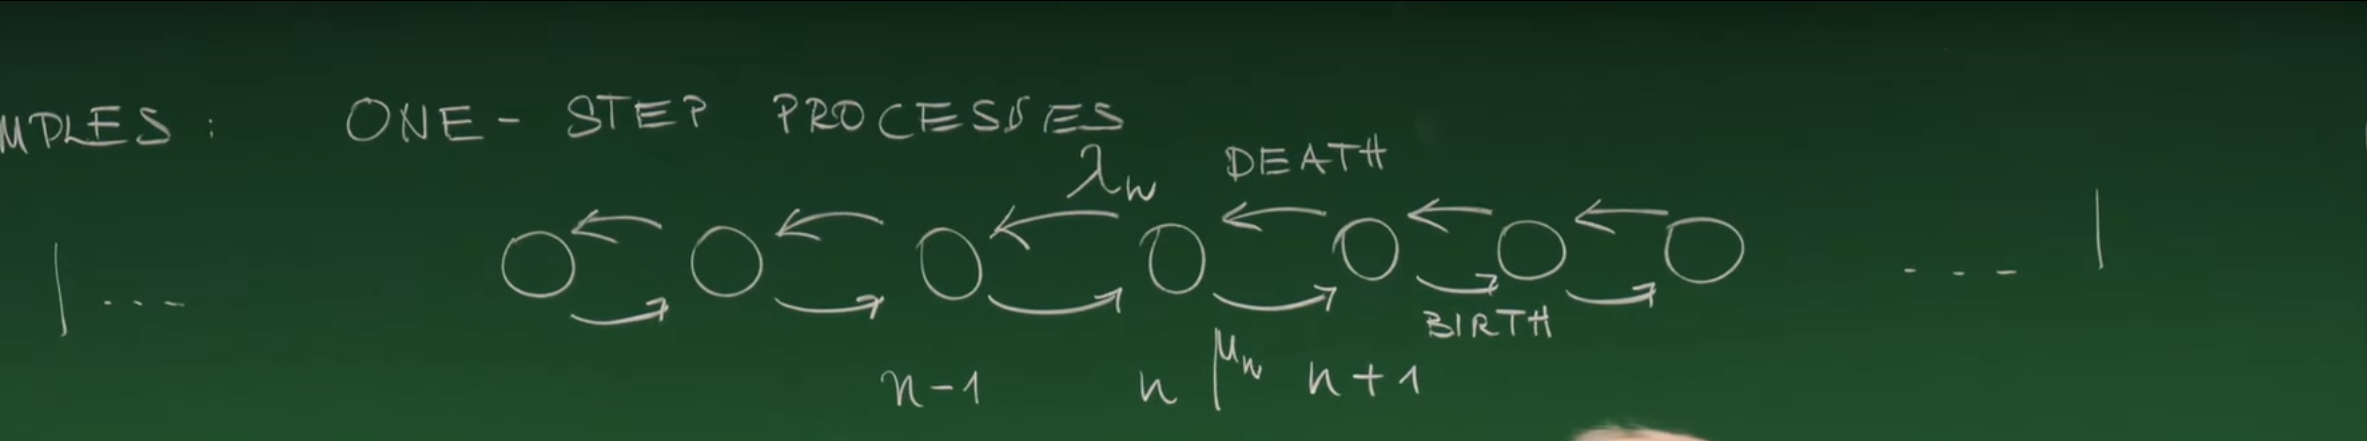 MPLES: ONE-STEP PROCESSES
λn DEATH
BIRTH
n-1 n μn n+1